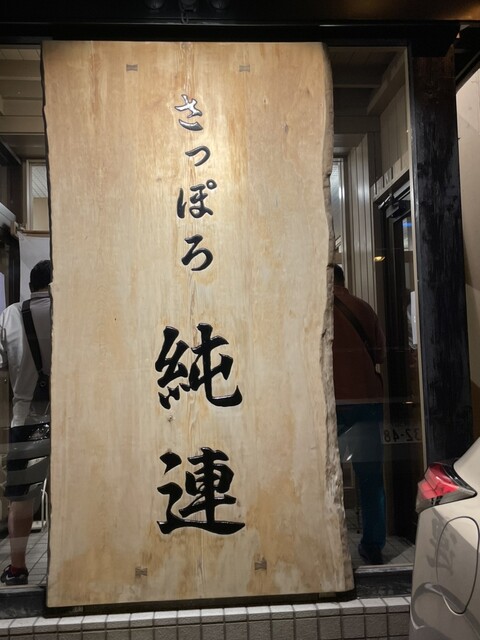 さっぽろ
純連
32-48